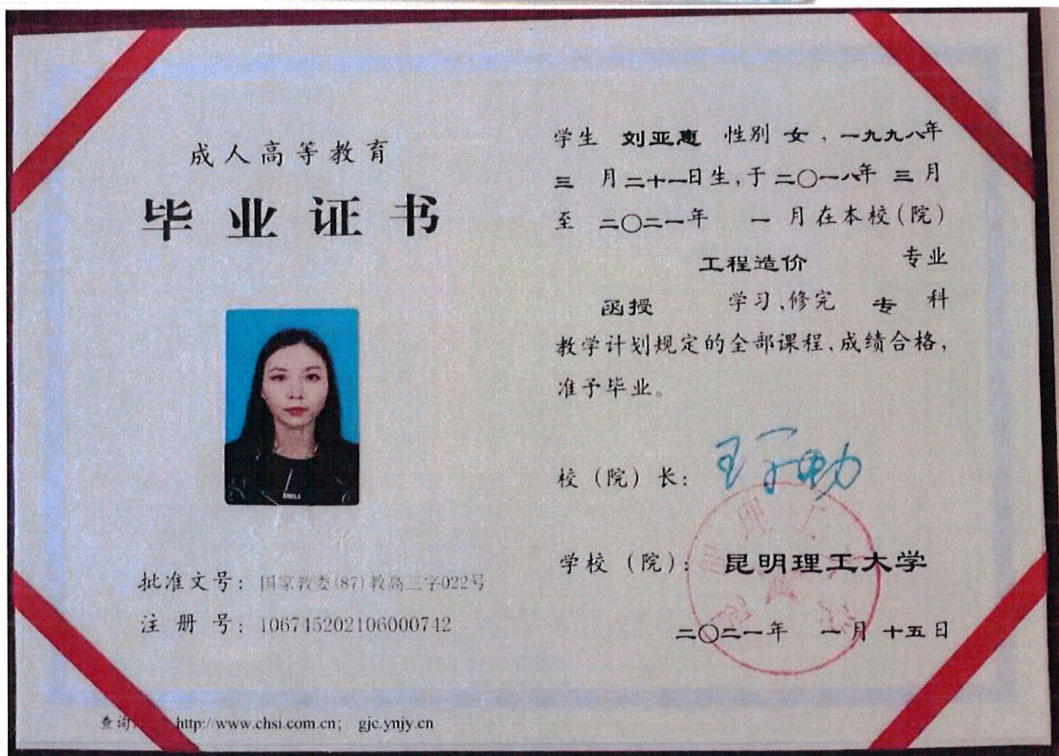 成人高等教育
毕业证书
批准文号：国家教委(87)教高三字022号
注 册 号：106745202106000742
查询 http://www.chsi.com.cn; gjc.ynjy.cn
学生 刘亚惠 性别 女，一九九八年
三 月二十一日生，于二〇一八年 三月
至 二〇二一年 一月在本校(院)
工程造价 专业
函授 学习，修完 专 科
教学计划规定的全部课程，成绩合格，
准予毕业。
校（院）长：
学校（院）：昆明理工大学
二〇二一年 一月十五日